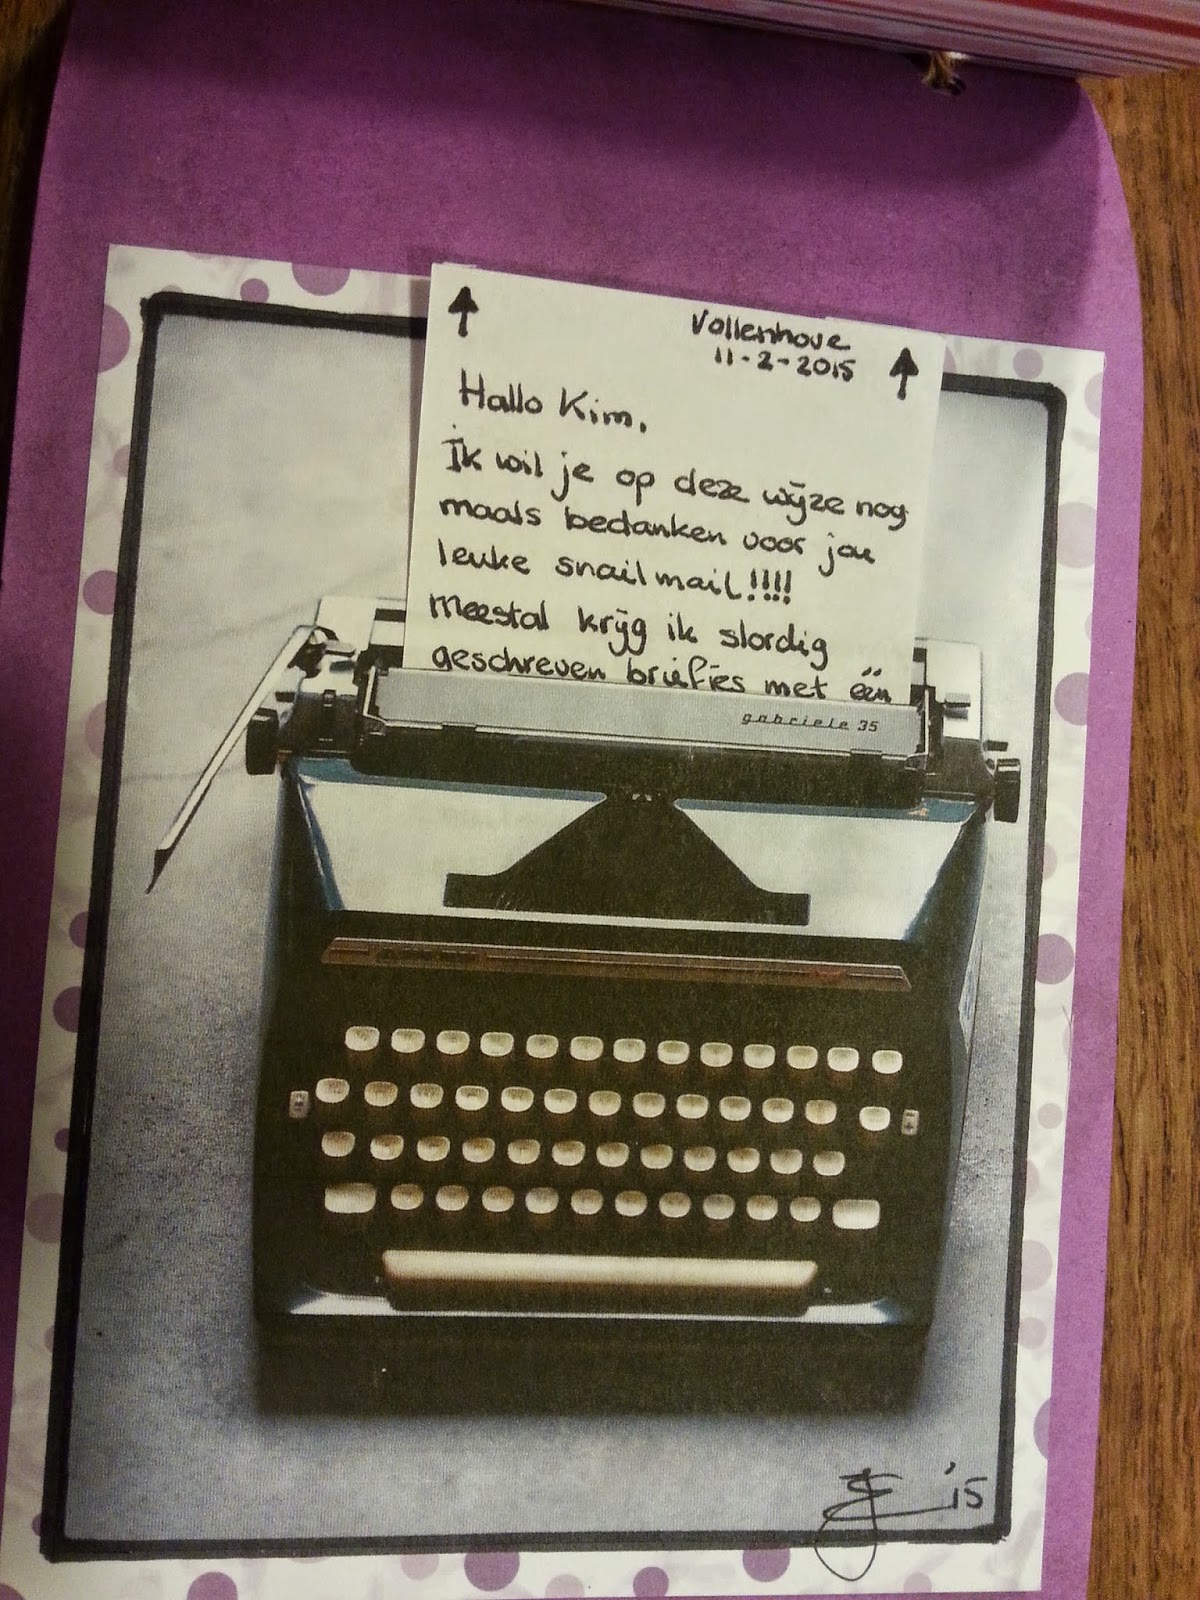 Vollenhove
11-2-2015
Hallo Kim,
Ik wil je op deze wijze nog
maals bedanken voor jou
leuke snailmail!!!!
Meestal krijg ik slordig
geschreven briefies met één
gabriele 35
'15